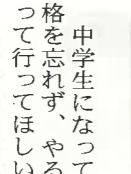 中学生になって
格を忘れず、やろ
って行ってほしい